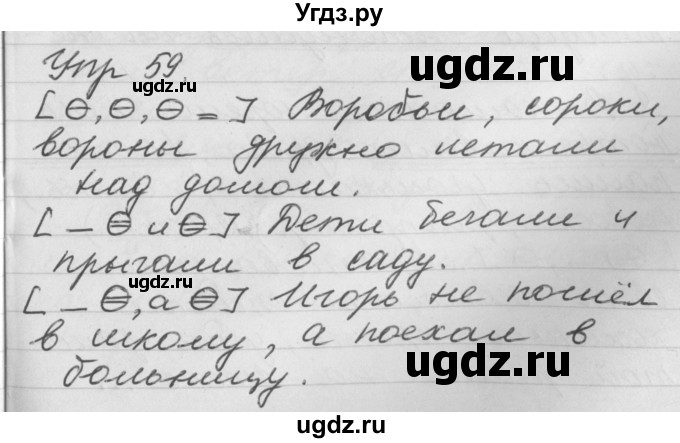 Угдз.ру
Упр 59.
ugdz.ru
ugdz.ru
[⊖, ⊖, ⊖ =] Воробьи, сороки,
вороны дружно летали
над домом.
[— ⊖ и ⊖]. Дети бегали и
прыгали в саду.
ugdz.ru
[— ⊜, а ⊜] Игорь не пошёл
в школу, а поехал в
больницу.
ugdz.ru
ugdz.ru